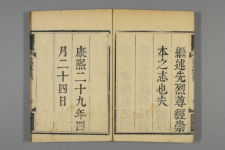 繼述先烈尊經崇
本之志也夫
康熙二十九年四
月二十四日